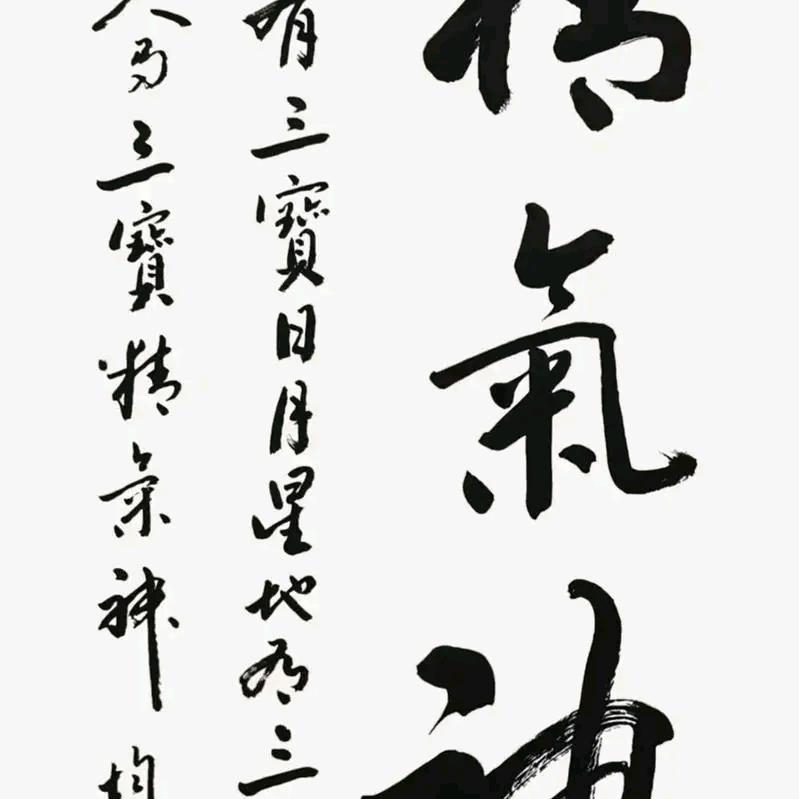 精氣神
有三寶日月星地有三
人有三寶精氣神